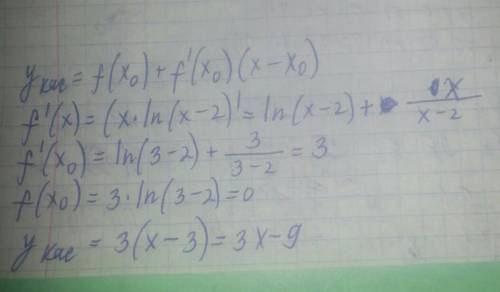 y кас = f(x₀) + f'(x₀)(x − x₀)
f'(x) = (x · ln(x−2)' = ln(x−2) + x/(x−2)
f'(x₀) = ln(3−2) + 3/(3−2) = 3
f(x₀) = 3 · ln(3−2) = 0
y кас = 3(x − 3) = 3x − 9